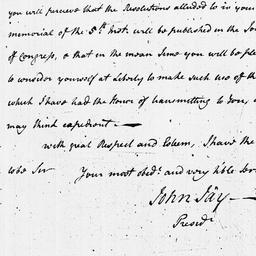 you will perceive that the Resolutions alluded to in your
memorial of the 5th Inst. will be published in the Jou
of Congress, & that in the mean Time you will be ple
to consider yourself at Liberty to make such use of th
which I have had the Honor of transmitting to You, a
may think expedient —
with great Respect and Esteem, I have the
to be Sir Your most obedt. and very hble Ser
John Jay —
Presidt